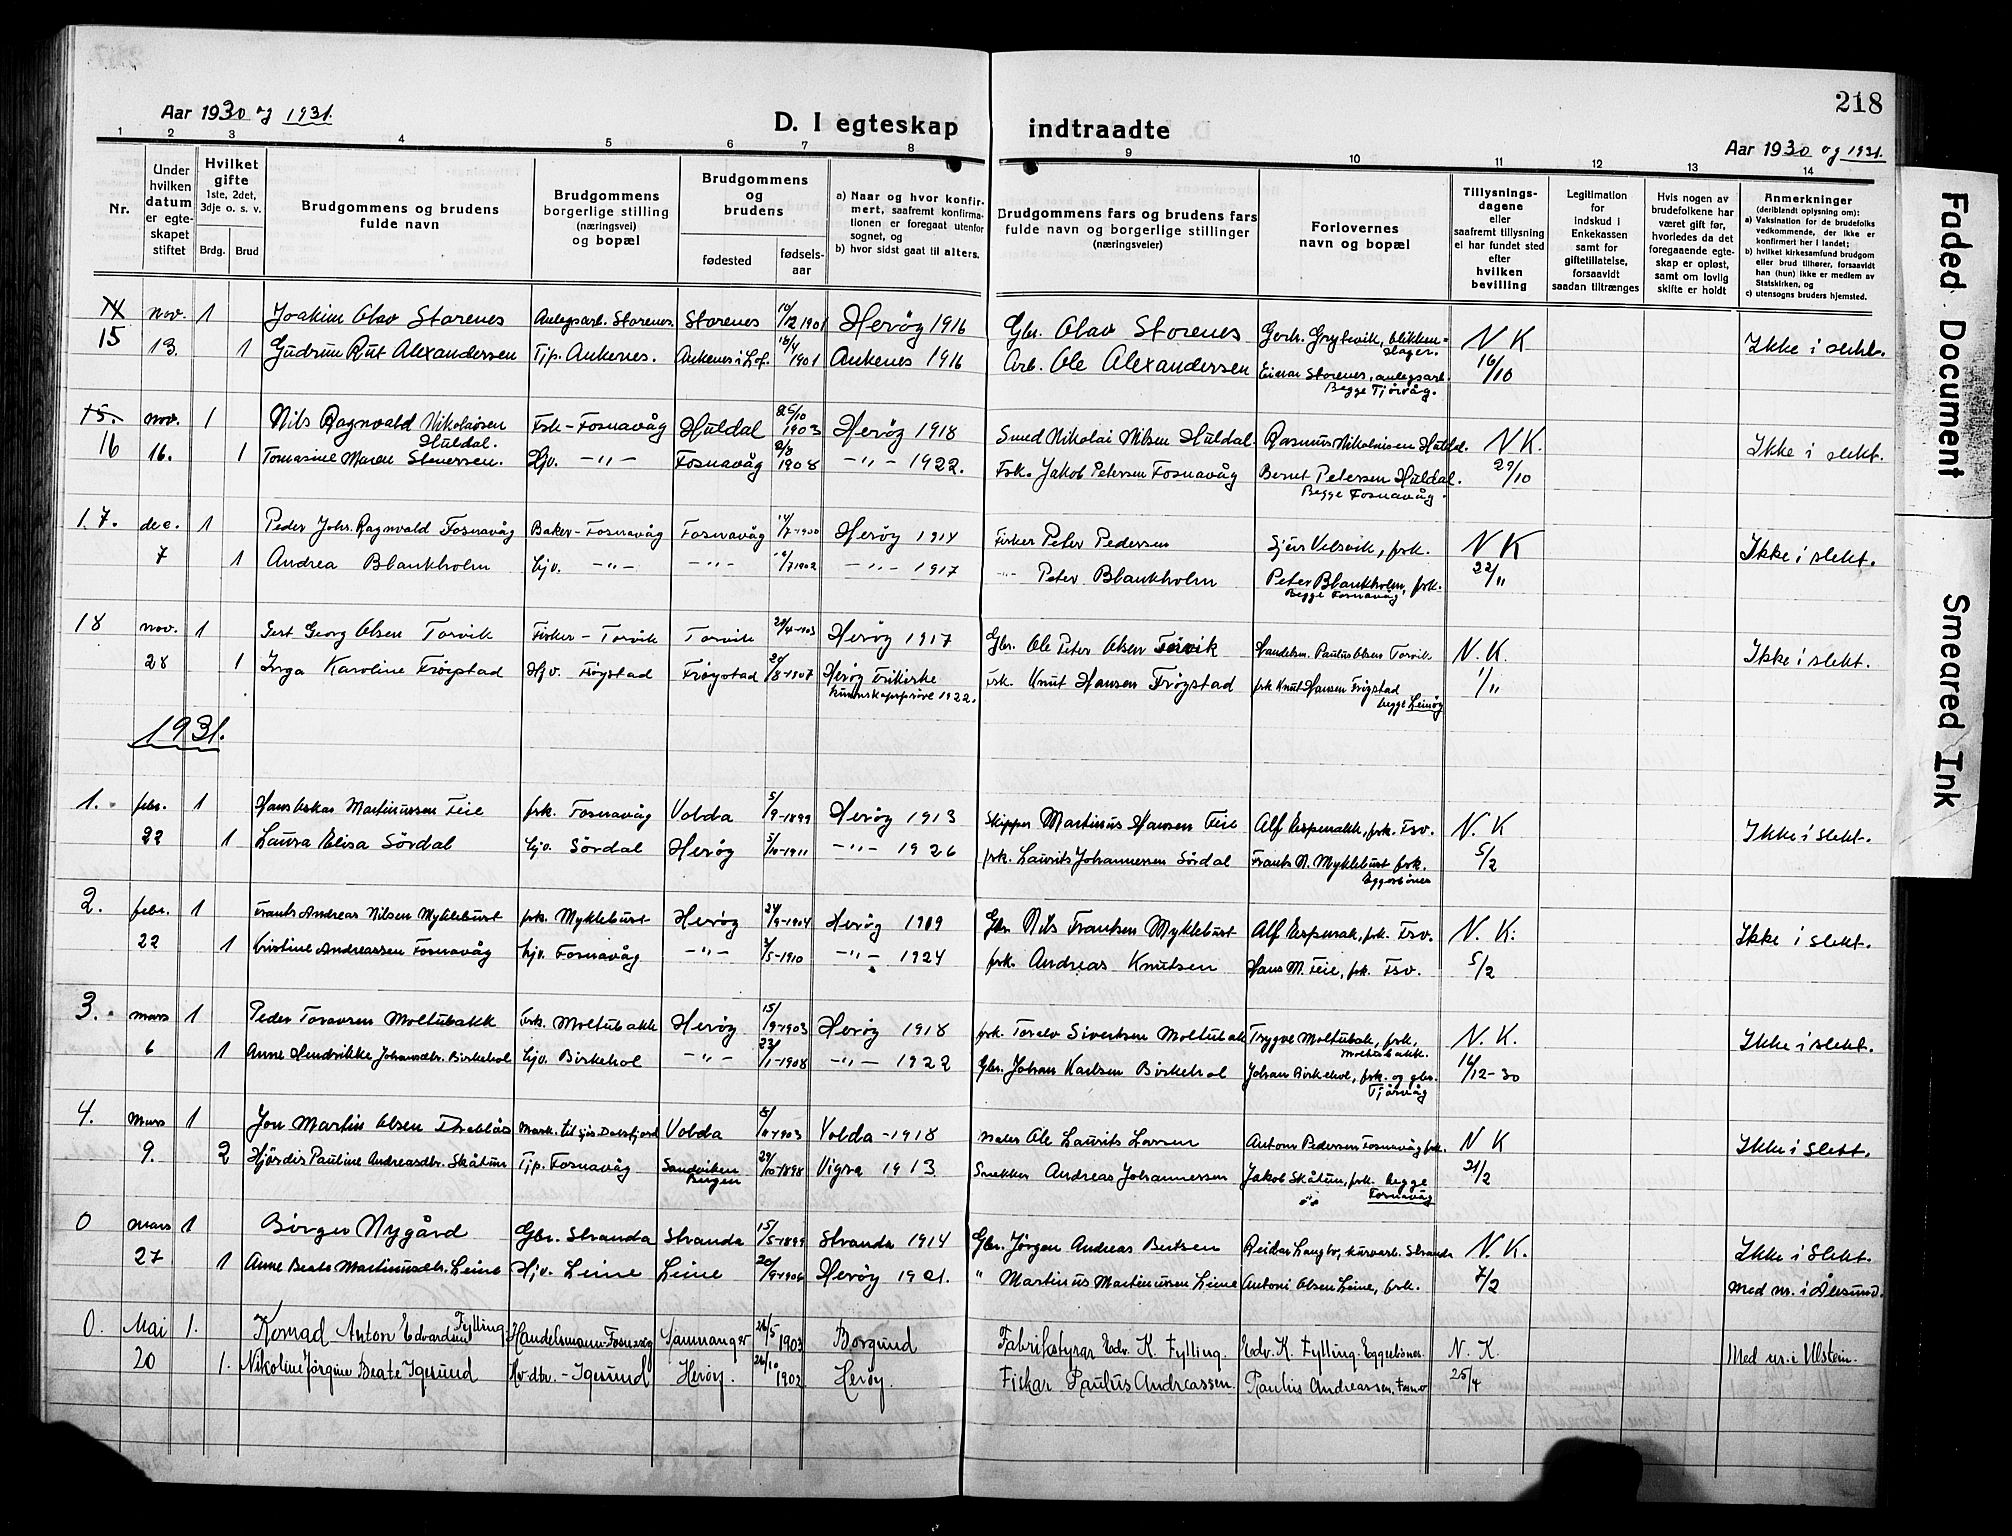 218
Aar 1930 og 1931.
D. I egteskap indtraadte
Aar 1930 og 1931.
1 2 3 4 5 6 7 8 9 10 11 12 13 14
Nr.
Under hvilken datum er egteskapet stiftet
Hvilket gifte 1ste, 2det, 3dje o. s. v.
Brdg. Brud
Brudgommens og brudens fulde navn
Brudgommens borgerlige stilling (næringsvei) og bopæl
Brudgommens og brudens
fødested fødselsaar
a) Naar og hvor konfirmert, saafremt konfirmationen er foregaat utenfor sognet, og
b) hvor sidst gaat til alters.
Brudgommens fars og brudens fars fulde navn og borgerlige stillinger (næringsveier)
Forlovernes navn og bopæl
Tillysningsdagene eller saafremt tillysning ei har fundet sted efter hvilken bevilling
Legitimation for indskud i Enkekassen samt for giftetillatelse, forsaavidt saadan tiltrænges
Hvis nogen av brudefolkene har været gift før, hvorledes da det foregaaende egteskap er opløst, samt om lovlig skifte er holdt
Anmerkninger (deriblandt oplysning om):
a) Vaksination for de brudefolks vedkommende, der ikke er konfirmert her i landet;
b) hvilket kirkesamfund brudgom eller brud tilhører, forsaavidt han (hun) ikke er medlem av Statskirken, og
c) utensogns bruders hjemsted.
14 nov. 1 Joakim Olav Storenes Anlegsarb. Storenes. Storenes 10/12 1901 Herøy 1916 Gbr. Olav Storenes Gerh. Grytevik, blikkenslager. N K Ikke i slekt.
15 13. 1 Gudrun Rut Alexandersen Tjp. Ankenes. Ankenes i Lof. 16/4 1901 Ankenes 1916 Arb. Ole Alexandersen Einar Storenes, anlegsarb. Begge Tjørvåg. 16/10
15. nov. 1 Nils Ragnvald Nikolaisen Huldal. Fsk - Fosnavåg Huldal 25/10 1903 Herøy 1918 Smed Nikolai Nilsen Huldal Rasmus Nikolaisen Huldal. N K. Ikke i slekt.
16 16. 1 Tomasine Maren Stenersen. Hjv. -"- Fosnavåg 1908 -"- 1922. Fsk. Jakob Petersen Fosnavåg Bernt Petersen Huldal. Begge Fosnavåg. 29/10
17. dec. 1 Peder Johs. Ragnvald Fosnavåg Baker - Fosnavåg Fosnavåg 14/7-1900 Herøy 1914 Fisker Peter Pedersen Sjurs Velsvik, fsk. N K Ikke i slekt.
7 1 Andrea Blankholm Hjv. -"- -"- /7 1902 -"- 1917 -"- Peter Blankholm Peter Blankholm, fsk. Begge Fosnavåg 22/11
18 nov. 1 Gert Georg Olsen Torvik Fisker - Torvik Torvik 29/4-1903 Herøy 1917 Gbr. Ole Peter Olsen Torvik Handelsm. Paulus Olsen Torvik N. K. Ikke i slekt.
28 1 Inga Karoline Frøystad Hjv. Frøystad Frøystad 20/8-1907 Herøy Frikirke kunnskapsprøve 1922. Fsk. Knut Hansen Frøystad fsk Knut Hansen Frøystad begge Leinøy 1/11
1931.
1. febr. 1 Hans Oskar Martinussen Teie fsk. Fosnavåg Volda 5/9-1899 Herøy 1913 Skipper Martinus Hansen Teie Alf Espenakk, fsk. Fsv. N. K Ikke i slekt.
22 1 Laura Elisa Sørdal Hjv. Sørdal Herøy 5/10-1911 -"- 1926 fsk. Laurits Johannessen Sørdal Frants N. Myklebust fsk. Eggesbønes 5/2
2. febr. 1 Frants Andreas Nilsen Myklebust fsk. Myklebust Herøy 24/9-1904 Herøy 1909 Gbr. Nils Frantsen Myklebust Alf Espenak, fsk. Fsv. N. K. Ikke i slekt.
22 1 Kristine Andreassen Fosnavåg Hjv. Fosnavåg -"- 3/5-1910 -"- 1924 fsk. Andreas Knutsen Hans M. Teie, fsk. Fsv. 5/2
3. mars 1 Peder Toravsen Moltubakk Fsk. Moltubakk Herøy 15/9-1903 Herøy 1918 fsk. Torelv Sivertsen Moltubak Trygve Moltubak, fsk. Moltubakk. N. K. Ikke i slekt.
6 1 Anne Hendrikke Johansdtr. Birkehol Hjv. Birkehol -"- 23/1-1908 -"- 1922 Gbr. Johan Karlsen Birkehol Johan Birkehol, fsk. og gbr. Tjørvåg 16/12-30
4. Mars 1 Jon Martin Olsen Mask. til sjøs Dalsfjord Volda 8/11-1903 Volda - 1918 Maler Ole Laurits Larsen Antoni Pedersen Fosnavåg fsk. N K Ikke i slekt.
9. 2 Hjørdis Pauline Andreasdtr. Skåtun Tjp. Fosnavåg Sandviken Bergen 29/10-1898 Vigra 1913 Snekker Andreas Johannessen Jakob Skåtun, fsk. begge Fosnavåg 21/2
0 mars 1 Børger Nygård Gbr. Stranda Stranda 15/5-1899 Stranda 1914 Gbr. Jørgen Andreas Bertsen Reidar Langlo, kurvarb. Stranda N. K. Ikke i Slekt.
27 1 Anne Beate Martinusdtr. Leine Hjv. Leine Leine 20/9-1906 Herøy 1921. " Martinus Martinussen Leine Antoni Olsen Leine, fsk. 7/2 Med nr. i Ålesund.
0. Mai 1. Konrad Anton Edvardsen Fylling Handelsmann Fosnavåg Samnanger 26/5 1903 Borgund Fabrikstyrar Edv. K. Fylling. Edv. K. Fylling. Eggesbønes. N. K Med nr. i Ulstein.
20 1. Nikoline Jörgine Beate Igesund Hv. dtr. - Igesund Herøy. 26/10 1902 Herøy. Fiskar Paulus Andreassen. Paulus Andreassen. Fosnv 25/4
Faded Document
Smeared Ink